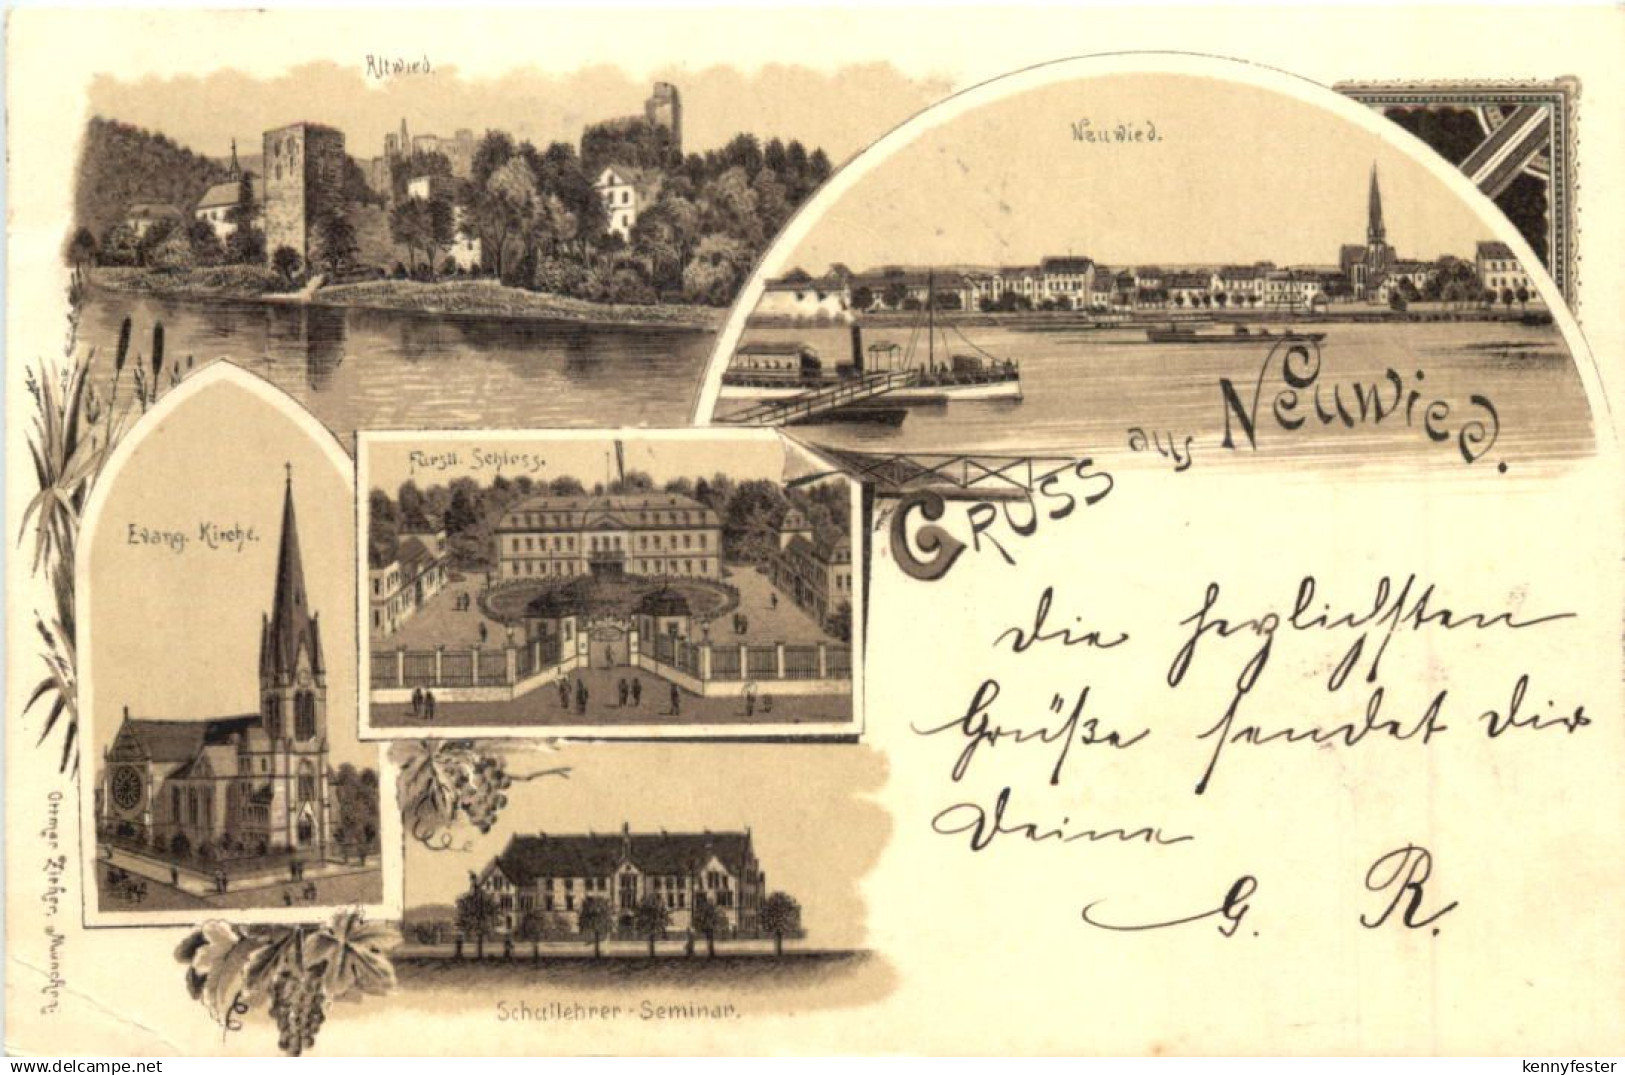 Altwied.
Neuwied.
Gruss aus Neuwied.
Fürstl. Schloss.
Evang. Kirche.
Die herzlichsten
Grüße sendet Dir
Deine
G. R.
Schullehrer-Seminar.
Ottmar Zieher, München.
www.delcampe.net
kennyfester